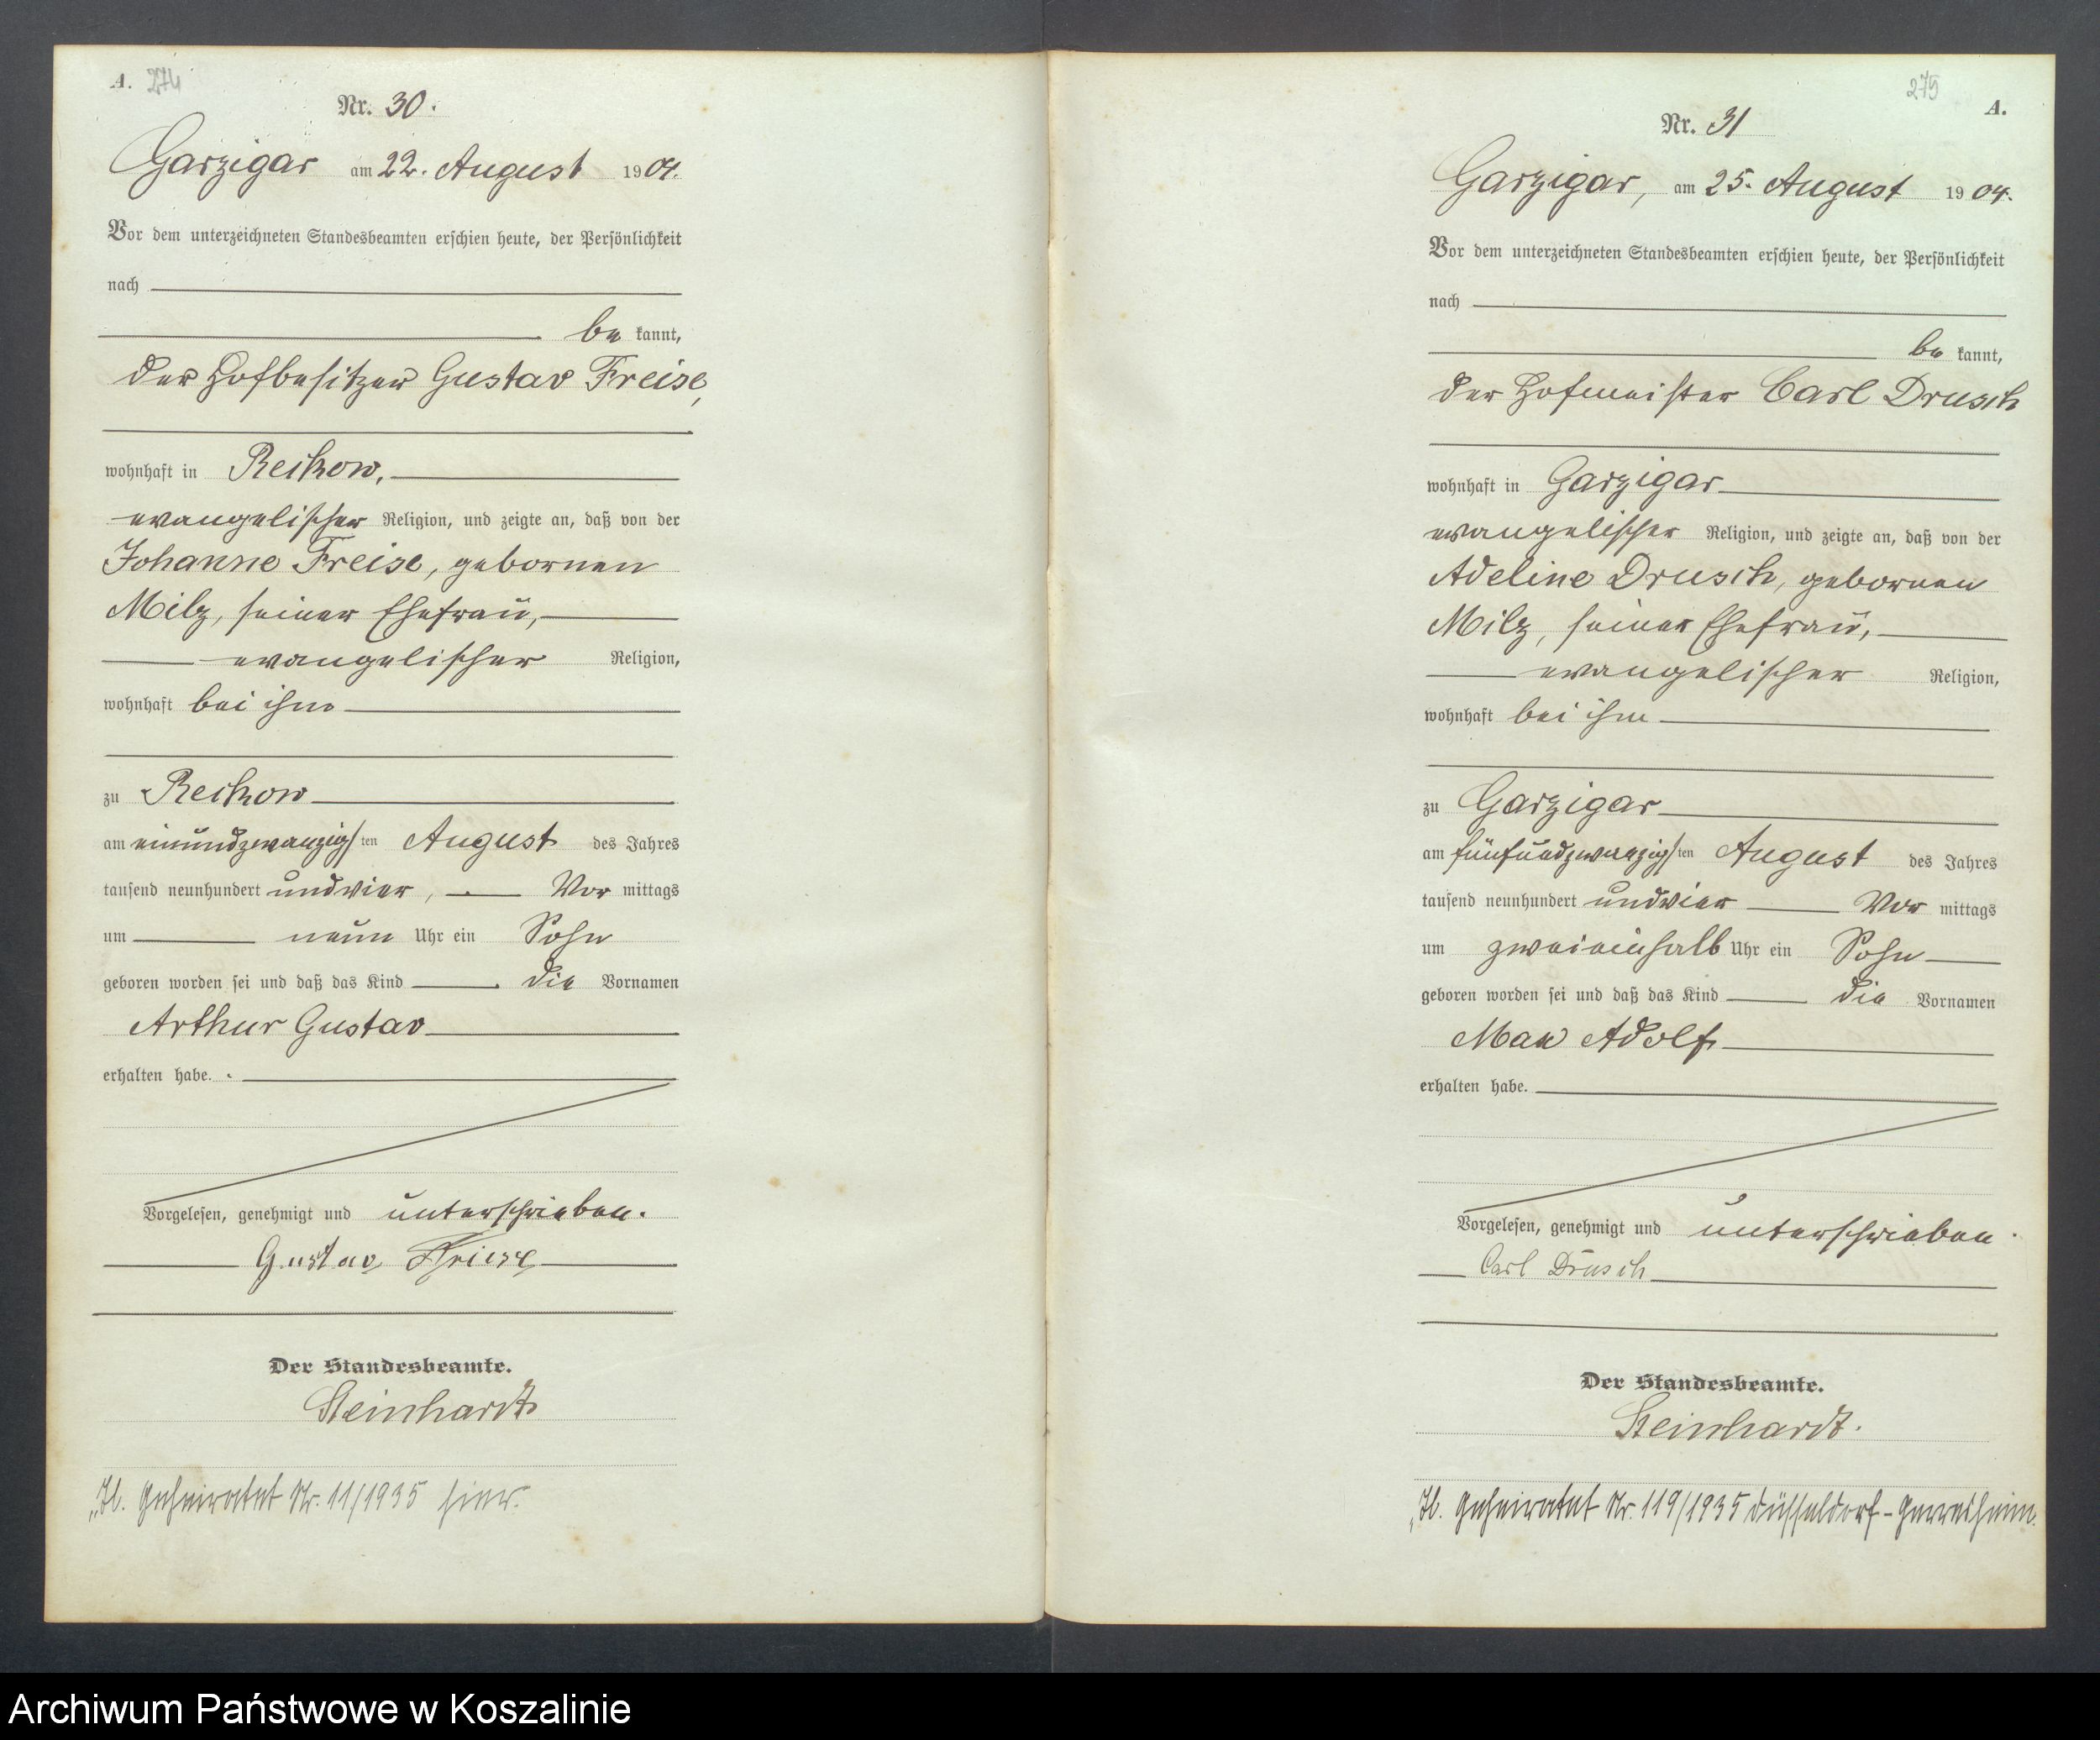 A. 274
Nr. 30.
Garzigar am 22. August 1904.
Vor dem unterzeichneten Standesbeamten erschien heute, der Persönlichkeit
nach
be kannt,
der Hofbesitzer Gustav Freise,
wohnhaft in Reckow,
evangelischer Religion, und zeigte an, daß von der
Johanne Freise, gebornen
Milz, seiner Ehefrau,
evangelischer Religion,
wohnhaft bei ihm
zu Reckow
am einundzwanzigsten August des Jahres
tausend neunhundert undvier, Vor mittags
um neun Uhr ein Sohn
geboren worden sei und daß das Kind die Vornamen
Arthur Gustav
erhalten habe.
Vorgelesen, genehmigt und unterschrieben.
Gustav Friese
Der Standesbeamte.
Steinhardt
Geheiratet Nr. 11/1935 hier.
275 A.
Nr. 31
Garzigar, am 25. August 1904.
Vor dem unterzeichneten Standesbeamten erschien heute, der Persönlichkeit
nach
be kannt,
der Hofmeister Carl Drusch
wohnhaft in Garzigar
evangelischer Religion, und zeigte an, daß von der
Adeline Drusch, gebornen
Milz, seiner Ehefrau,
evangelischer Religion,
wohnhaft bei ihm
zu Garzigar
am fünfundzwanzigsten August des Jahres
tausend neunhundert undvier Vor mittags
um zweieinhalb Uhr ein Sohn
geboren worden sei und daß das Kind die Vornamen
Max Adolf
erhalten habe.
Vorgelesen, genehmigt und unterschrieben.
Carl Drusch
Der Standesbeamte.
Steinhardt.
Geheiratet Nr. 119/1935 Düsseldorf-Gerresheim.
Archiwum Państwowe w Koszalinie